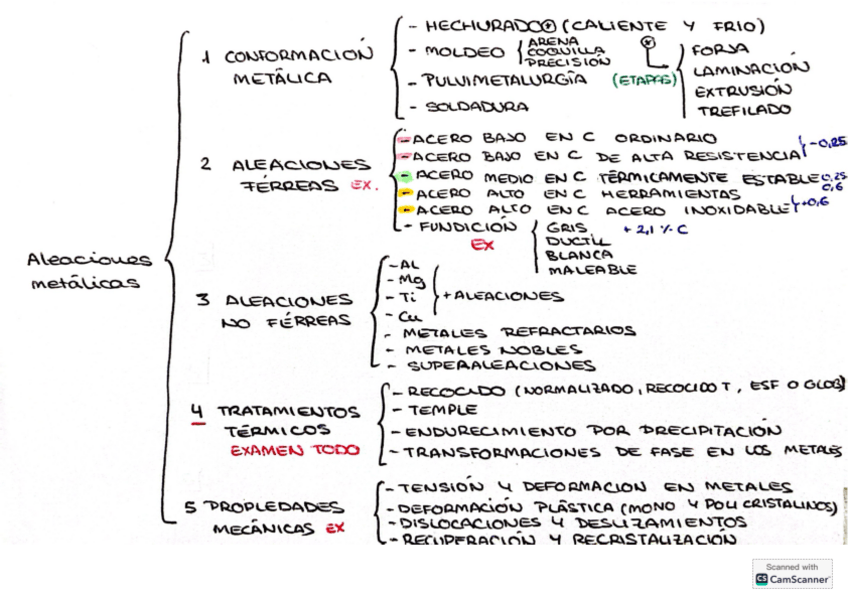 Aleaciones
metálicas
1 CONFORMACIÓN
METÁLICA
- HECHURADO * (CALIENTE Y FRIO)
- MOLDEO
ARENA
COQUILLA
PRECISIÓN
- PULVIMETALURGÍA (ETAPAS)
- SOLDADURA
*
FORJA
LAMINACIÓN
EXTRUSIÓN
TREFILADO
2 ALEACIONES
FÉRREAS EX.
- ACERO BAJO EN C ORDINARIO
- ACERO BAJO EN C DE ALTA RESISTENCIA
-0,25
- ACERO MEDIO EN C TÉRMICAMENTE ESTABLE 0,25
0,6
- ACERO ALTO EN C HERRAMIENTAS
- ACERO ALTO EN C ACERO INOXIDABLE
+0,6
- FUNDICIÓN
EX
GRIS
DUCTIL
BLANCA
MALEABLE
+ 2,1 % C
3 ALEACIONES
NO FÉRREAS
- AL
- Mg
- Ti
- Cu
+ ALEACIONES
- METALES REFRACTARIOS
- METALES NOBLES
- SUPERALEACIONES
4 TRATAMIENTOS
TÉRMICOS
EXAMEN TODO
- RECOCIDO (NORMALIZADO, RECOCIDO T, ESF O GLOB)
- TEMPLE
- ENDURECIMIENTO POR PRECIPITACIÓN
- TRANSFORMACIONES DE FASE EN LOS METALES
5 PROPIEDADES
MECÁNICAS EX
- TENSIÓN Y DEFORMACION EN METALES
- DEFORMACIÓN PLÁSTICA (MONO Y POLI CRISTALINOS)
- DISLOCACIONES Y DESLIZAMIENTOS
- RECUPERACIÓN Y RECRISTALIZACIÓN
Scanned with
CS CamScanner